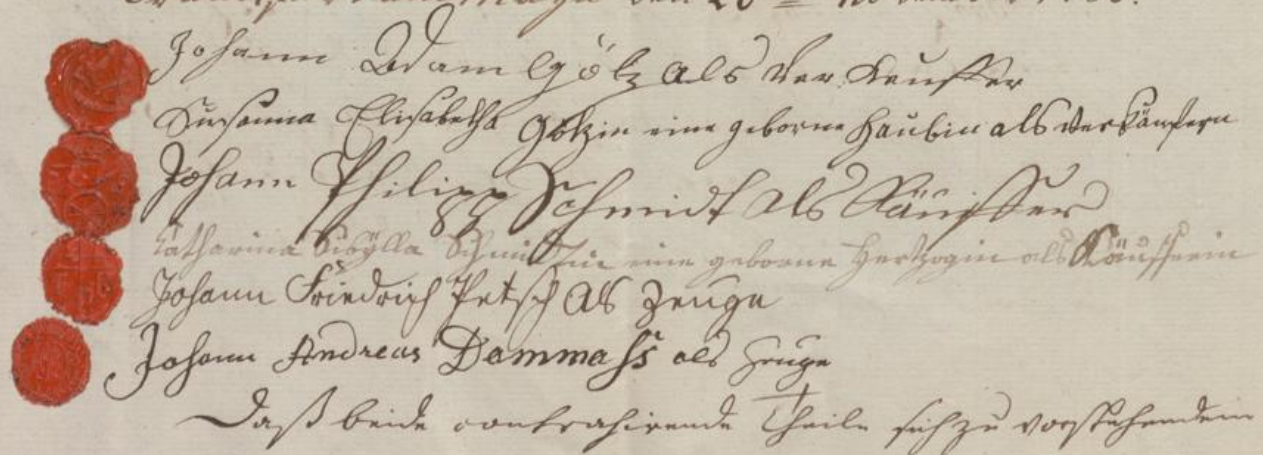 den 28
Johann Adam Götz als Verkeuffer
Susanna Elisabetha Götzin eine geborne Haubin als Verkäufern
Johann Philipp Schmidt als Käuffer
Catharina Sibÿlla Schmidtin eine geborne Hertzogin als Käufferin
Johann Friedrich Petsch als Zeuge
Johann Andreas Dammass als Zeuge
Daß beide contrahirende Theile sich zu vorstehendem